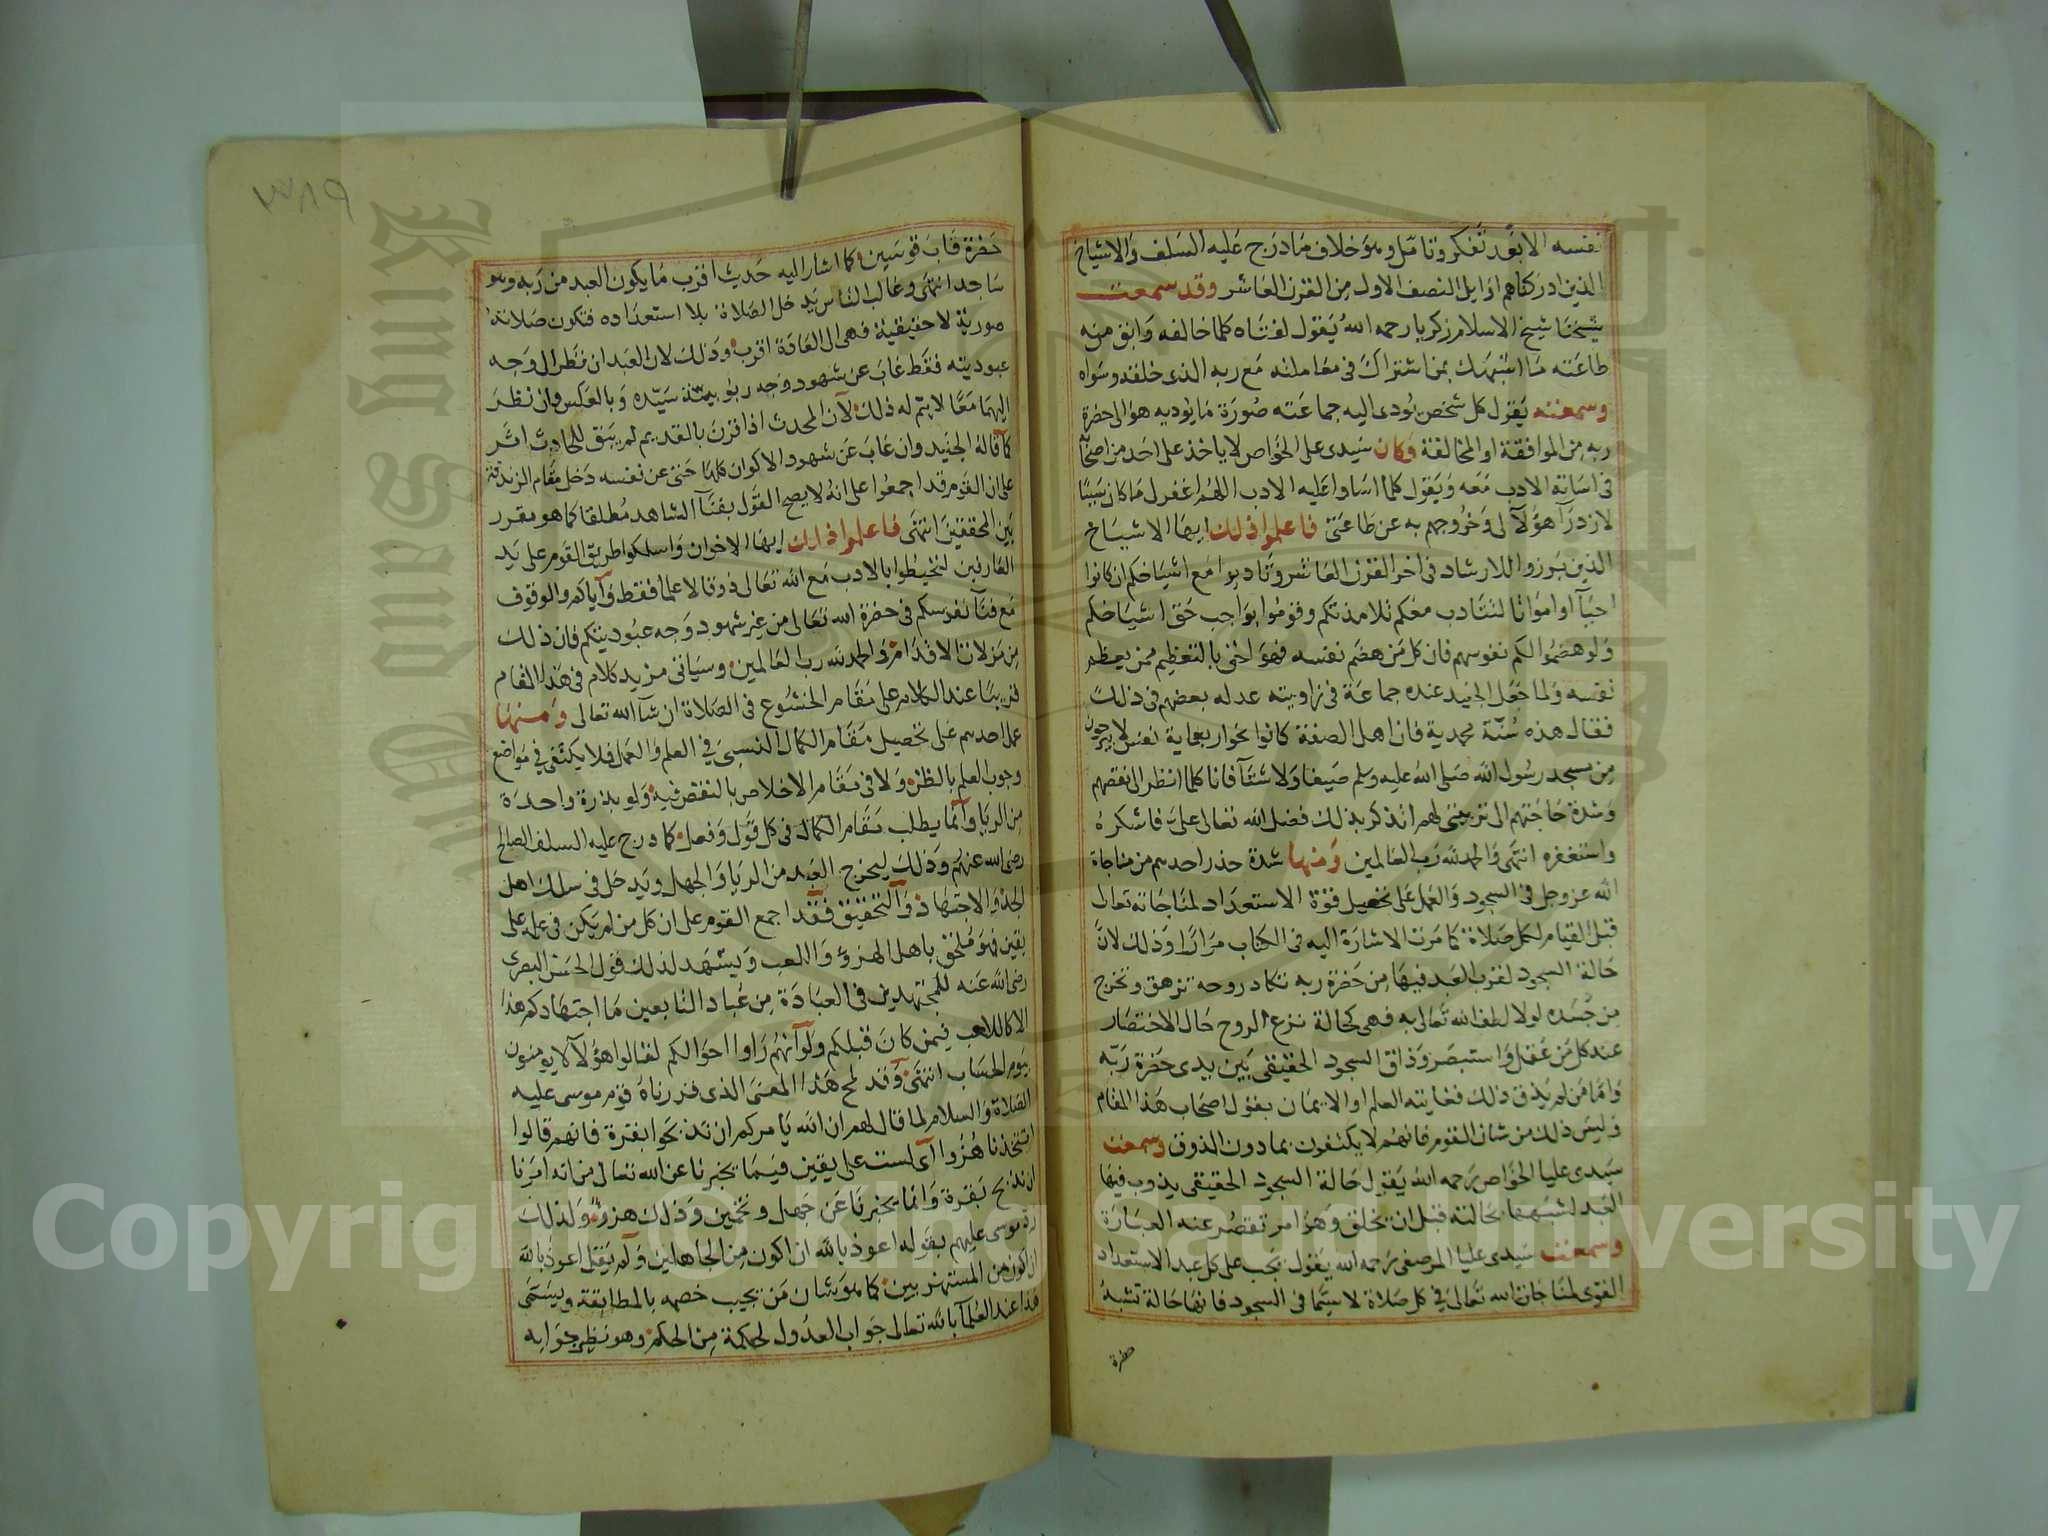 نفسه الا بعد تفكر وتامل وهو خلاف ما درج عليه السلف والاشياخ
الذين ادركناهم اوايل النصف الاول من القرن العاشر وقد سمعت
شيخنا شيخ الاسلام زكريا رحمه الله يقول لفتاه كلما خالفه وابق منه
طاعته ما اشبهك بمن اشتراك في معاملته مع ربه الذي خلقه وسواه
وسمعته يقول كل شخص تودي اليه جماعته صورة ما يوديه هو الى حضرة
ربه من الموافقة او المخالفة وكان سيدي على الخواص لا ياخذ على احد من اصحا
في اساته الادب معه ويقول كلما اساوا عليه الادب اللهم اغفر لي ما كان سببا
لازدرآ هؤلآ لي وخروجهم به عن طاعتي فاعلموا ذلك ايها الاشياخ
الذين برزوا للارشاد في اخر القرن العاشر وتادبوا مع اشياخكم ان كانوا
احيآ او امواتا لتتادب معكم تلامذتكم وقوموا بواجب حق اشياخكم
ولو هضموا لكم نفوسهم فان كل من هضم نفسه فهو احق بالتعظيم ممن يعظم
نفسه ولما جعل الجنيد عنده جماعة في زاويته عدله بعضهم في ذلك
فقال هذه سنة محمدية فان اهل الصفة كانوا نحو اربعماية نفس لا يبرحون
من مسجد رسول الله صلى الله عليه وسلم صيفا ولا شتآ فانا كلما انظر الى نقصهم
وشدة حاجتهم الى تربيتي لهم اتذكر بذلك فضل الله تعالى على فاشكره
واستغفره انتهى والحمد لله رب العالمين ومنها شدة حذر احدهم من مناجاة
الله عز وجل في السجود والعمل على تحصيل قوة الاستعداد لمناجاته تعالى
قبل القيام لكل صلاة كما مرت الاشارة اليه في الكتاب مرارا وذلك لان
حالة السجود لقرب العبد فيها من حضرة ربه تكاد روحه تزهق وتخرج
من جسده لولا لطف الله تعالى به فهي كحالة نزع الروح حال الاحتضار
عند كل من عقل واستبصر وذاق السجود الحقيقي بين يدي حضرة ربه
واما من لم يذق ذلك فغايته العلم او الايمان بقول اصحاب هذا المقام
وليس ذلك من شان القوم فانهم لا يكتفون بما دون الذوق وسمعت
سيدي عليا الخواص رحمه الله يقول حالة السجود الحقيقي يذوب فيها
العبد لشبهها بحالته قبل ان يخلق وهذا امر تقصر عنه العبارة
وسمعت سيدي عليا المرصفي رحمه الله يقول يجب على كل عبد الاستعداد
القوي لمناجاة الله تعالى في كل صلاة لا سيما في السجود فانها حالة تشبه
حضرة
حضرة قاب قوسين كما اشار اليه حديث اقرب ما يكون العبد من ربه وهو
ساجد انتهى وغالب الناس يدخل الصلاة بلا استعداد فتكون صلاته
صورية لا حقيقية فهي الى العادة اقرب وذلك لان العبد ان نظر الى وجه
عبوديته فقط غاب عن شهود وجه ربوبية سيده وبالعكس وان نظر
اليهما معا لا يتم له ذلك لان المحدث اذا قرن بالقديم لم يبق للحادث اثر
كما قاله الجنيد وان غاب عن شهود الاكوان كلها حتى عن نفسه دخل مقام الزندقة
على ان القوم قد اجمعوا على انه لا يصح القول بفنآ الشاهد مطلقا كما هو مقرر
بين المحققين انتهى فاعلموا ذلك ايها الاخوان واسلكوا طريق القوم على يد
العارفين لتحيطوا بالادب مع الله تعالى ذوقا لا علما فقط واياكم والوقوف
مع فنآ نفوسكم في حضرة الله تعالى من غير شهود وجه عبوديتكم فان ذلك
من مزلات الاقدام والحمد لله رب العالمين وسياتي مزيد كلام في هذا المقام
قريبا عند الكلام على مقام الخشوع في الصلاة ان شآ الله تعالى ومنها
عمل احدهم على تحصيل مقام الكمال النسبي في العلم والعمل فلا يكتفى في مواضع
وجوب العلم بالظن ولا في مقام الاخلاص بالنقص فيه ولو بذرة واحدة
من الريا وانما يطلب مقام الكمال في كل قول وفعل كما درج عليه السلف الصالح
رضي الله عنهم وذلك ليخرج العبد من الريا والجهل ويدخل في سلك اهل
الجد والاجتهاد والتحقيق فقد اجمع القوم على ان كل من لم يكن في عمله على
يقين فهو ملحق باهل الهزؤ واللعب ويشهد لذلك قول الحسن البصري
رضي الله عنه للمجتهدين في العبادة من عباد التابعين ما اجتهادكم هذا
الا كاللاعب فيمن كان قبلكم ولو انهم راوا احوالكم لقالوا هؤلآ لا يومنون
بيوم الحساب انتهى وقد لمح هذا المعنى الذي قررناه قوم موسى عليه
الصلاة والسلام لما قال لهم ان الله يأمركم ان تذبحوا بقرة فانهم قالوا
اتتخذنا هزوا اي لست على يقين فيما تخبرنا عن الله تعالى من انه امرنا
ان نذبح بقرة وانما تخبرنا عن جهل وتخمين وذلك هزؤ ولذلك
رد موسى عليهم بقوله اعوذ بالله ان اكون من الجاهلين ولم يقل اعوذ بالله
ان اكون من المستهزيين كما هو شان من يجيب خصمه بالمطابقة ويسمى
هذا عند العلمآ بالله تعالى جواب العدول لحكمة من الحكم وهو نظير جوابه
Copyright © King Saud University
King Saud University